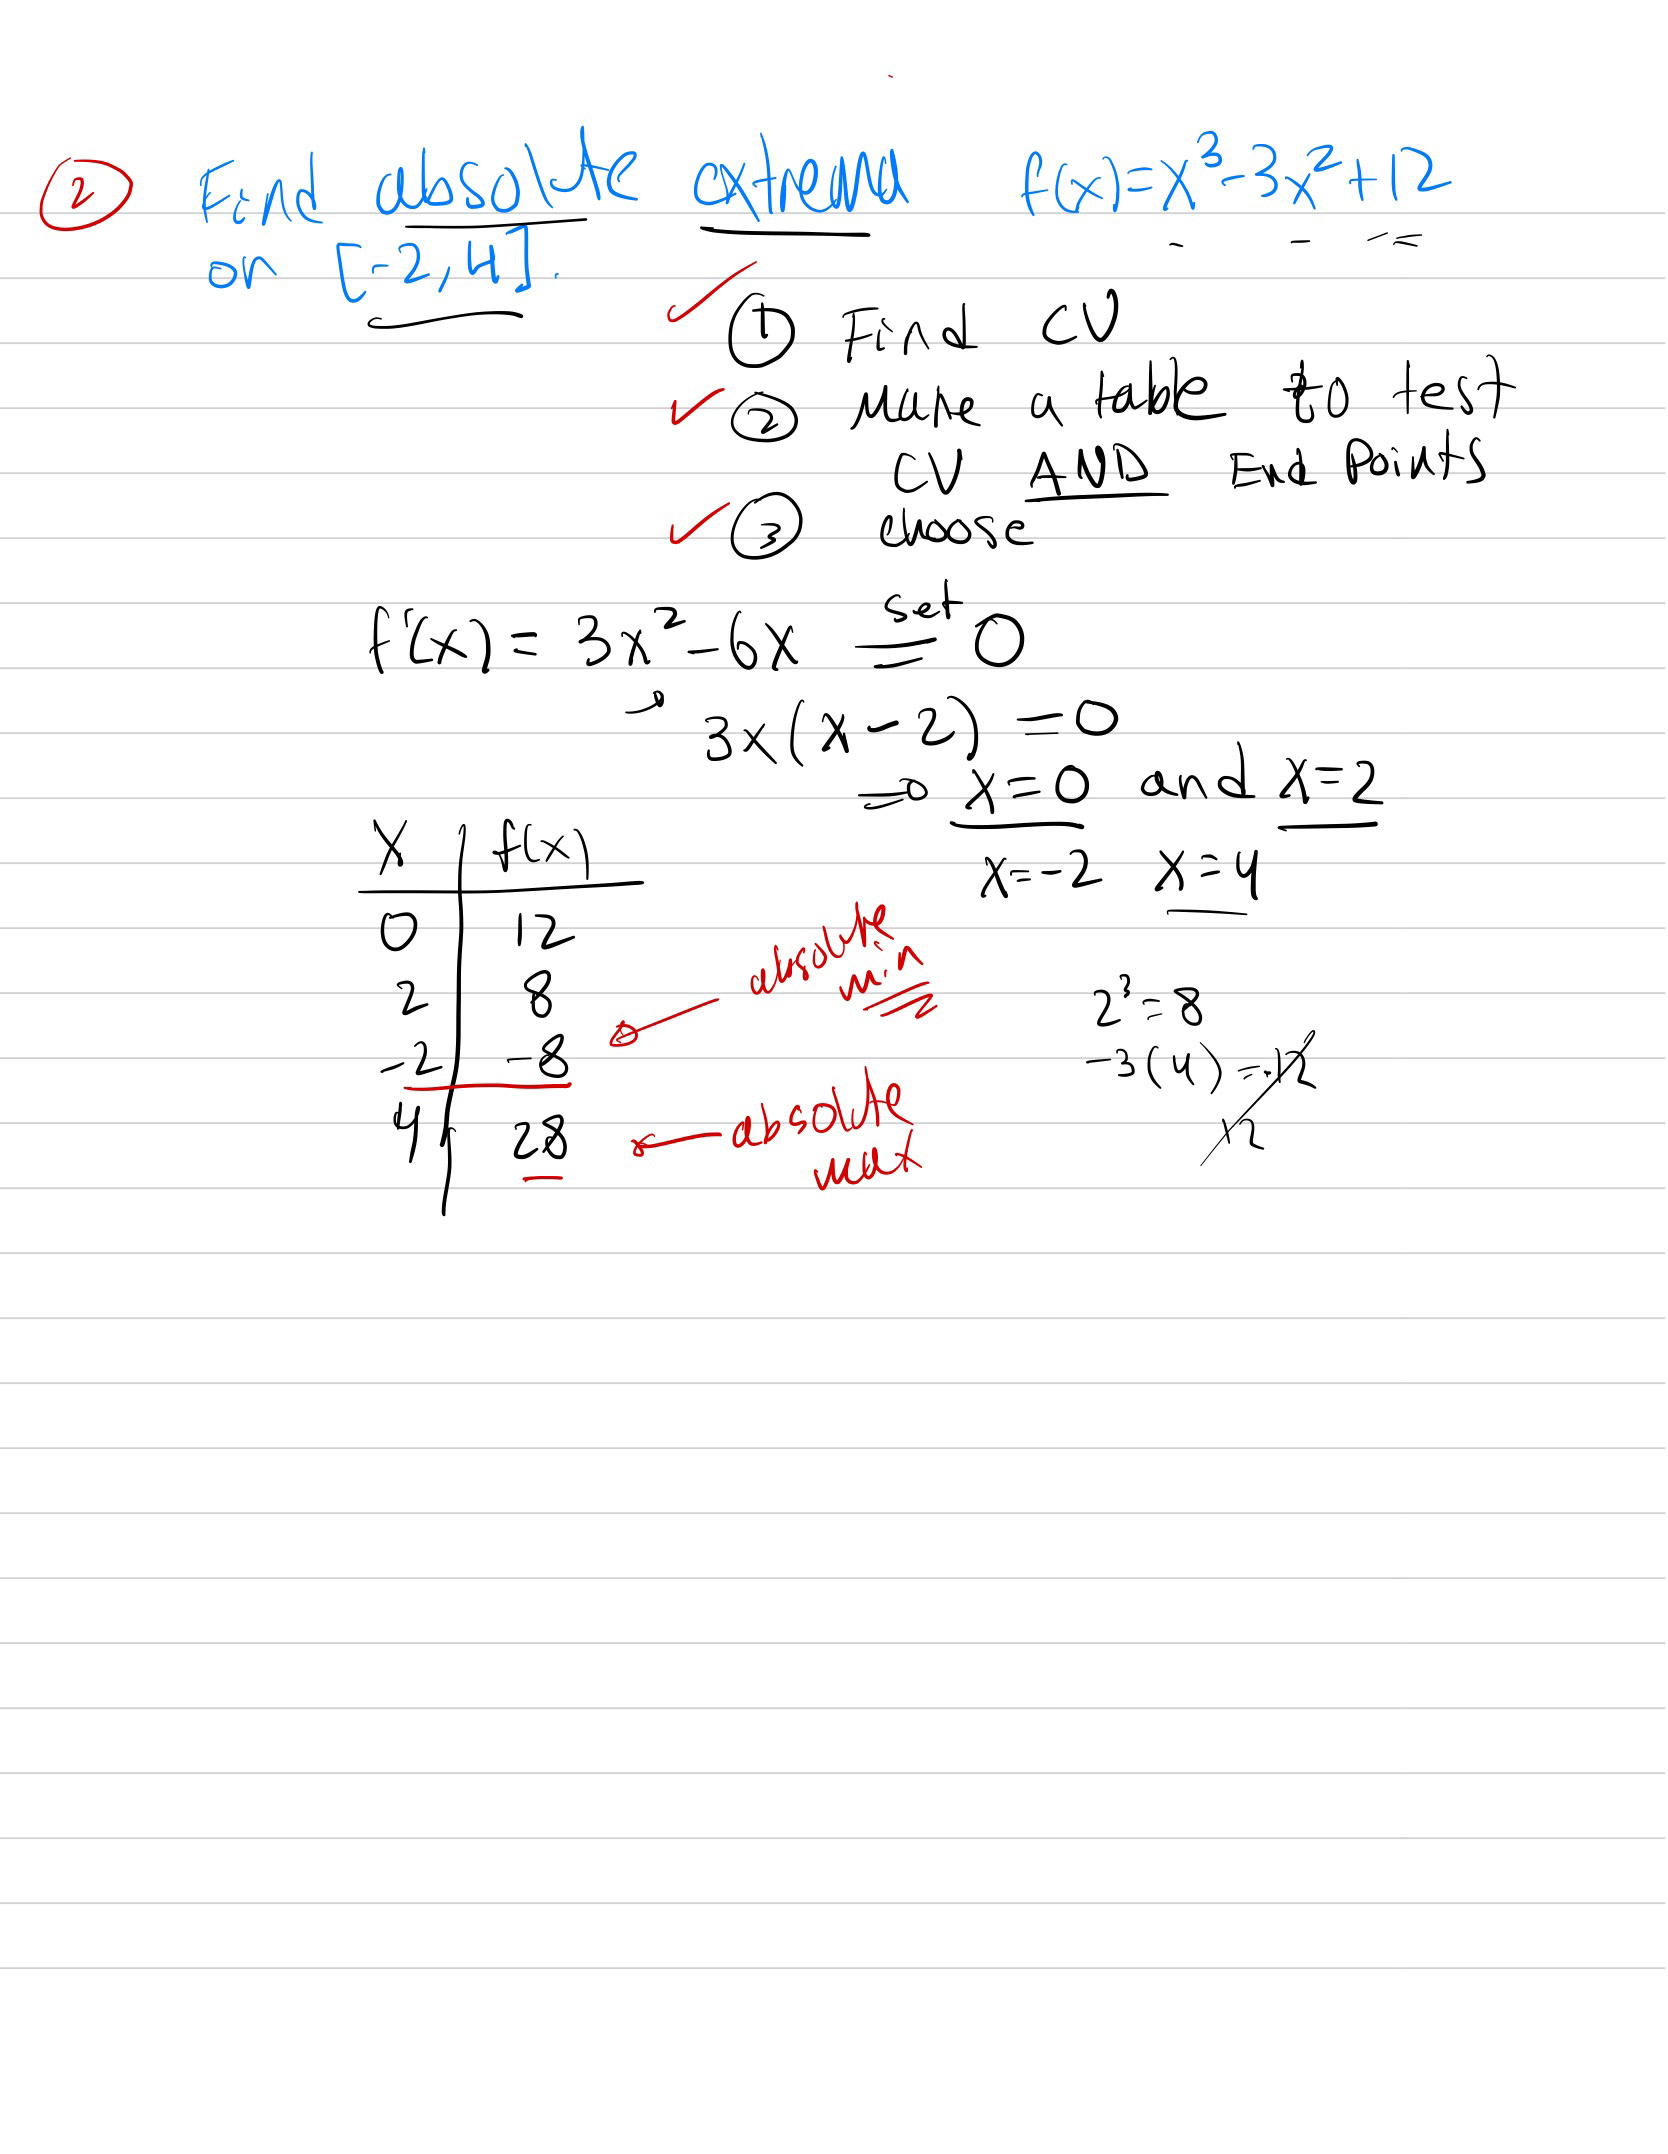 ② Find absolute extrema f(x)=x³-3x²+12
on [-2,4].
① Find CV
② Make a table to test
CV AND End Points
③ choose
f'(x) = 3x²-6x set = 0
3x(x-2) = 0
⇒ x=0 and x=2
x=-2 x=4
x f(x)
0 12
2 8
-2 -8
4 28
absolute
min
absolute
max
2³=8
-3(4)=-12
+2